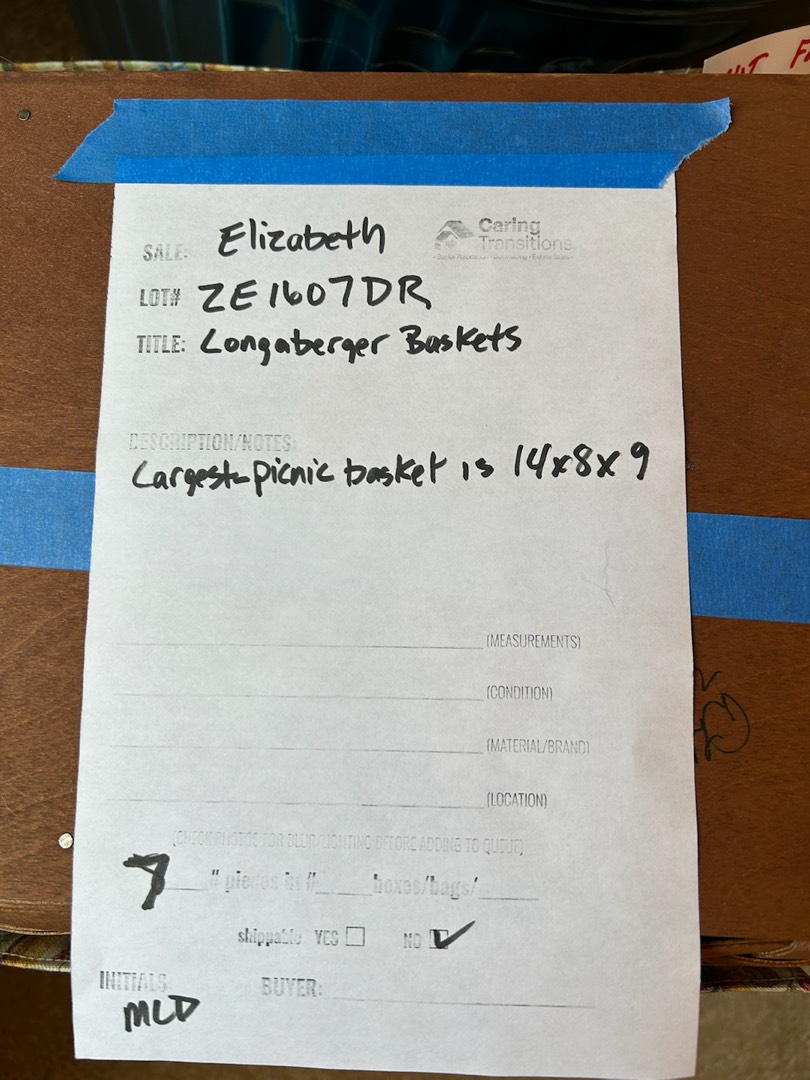 SALE: Elizabeth
Caring
Transitions
LOT# ZE1607DR
TITLE: Longaberger Baskets
DESCRIPTION/NOTES:
Largest-picnic basket is 14x8x9
(MEASUREMENTS)
(CONDITION)
(MATERIAL/BRAND)
(LOCATION)
(CHECK PHOTOS FOR BLUR/LIGHTING BEFORE ADDING TO QUEUE)
7 # pieces in # boxes/bags/
shippable YES NO
INITIALS BUYER:
MLD